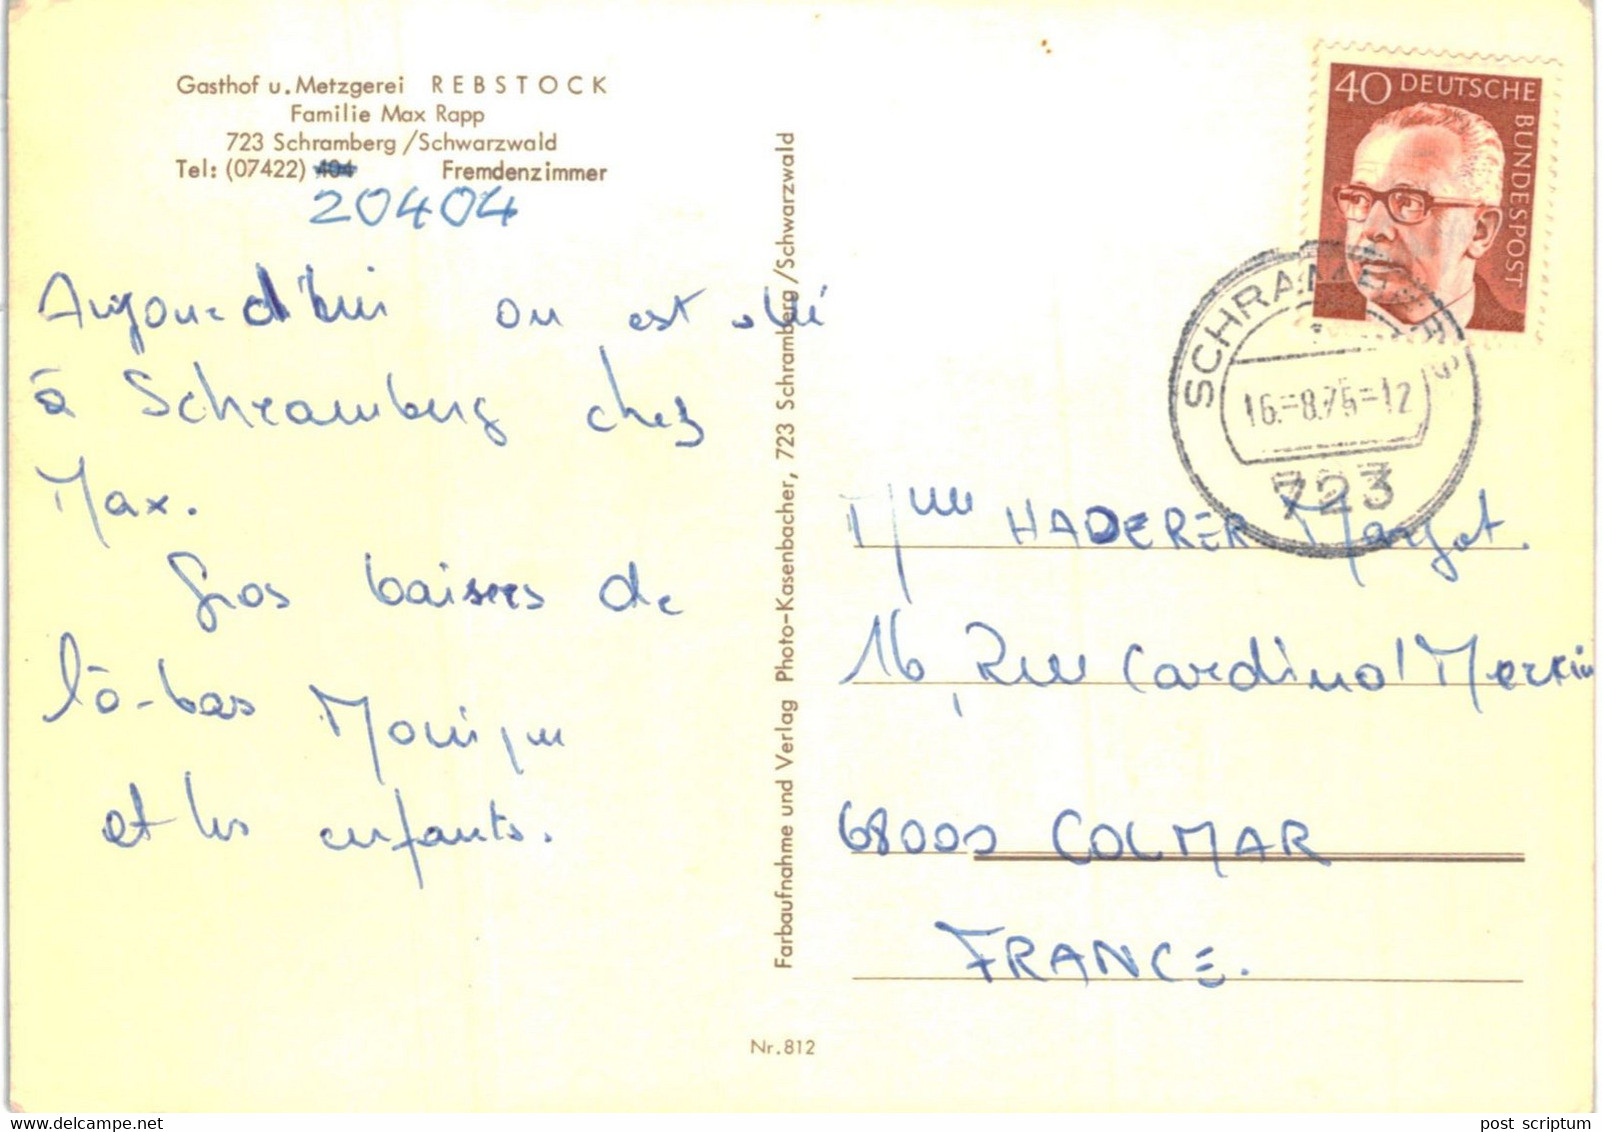 Gasthof u. Metzgerei REBSTOCK
Familie Max Rapp
723 Schramberg/Schwarzwald
Tel: (07422) 404 Fremdenzimmer
20404
Aujourd'hui on est allé
à Schramberg chez
Max.
Gros baisers de
là-bas Monique
et les enfants.
Farbaufnahme und Verlag Photo-Kasenbacher, 723 Schramberg/Schwarzwald
Nr. 812
40 DEUTSCHE
BUNDESPOST
SCHRAMBERG
16.-8.75-12
723
Mme HADERER Margot.
16, Rue Cardinal Mercier
68000 COLMAR
FRANCE.
post scriptum
www.delcampe.net